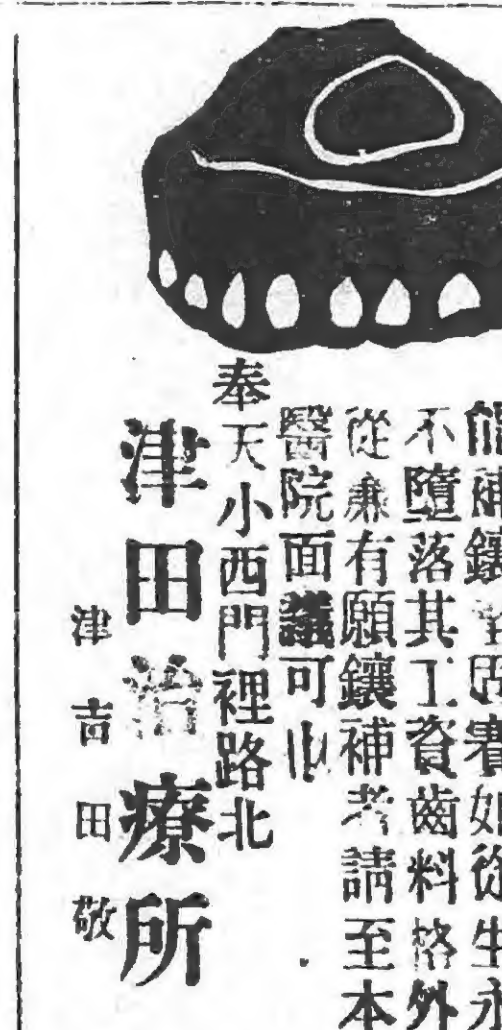 能補鑲固賽如從生永
不墮落其工資齒料格外
從廉有願鑲補者請至本
醫院面議可也
奉天小西門裡路北
津田治療所
津吉田敬